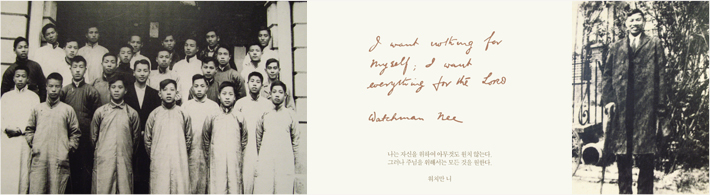 I want nothing for
myself; I want
everything for the Lord
Watchman Nee
나는 자신을 위하여 아무것도 원치 않는다.
그러나 주님을 위해서는 모든 것을 원한다.
워치만 니